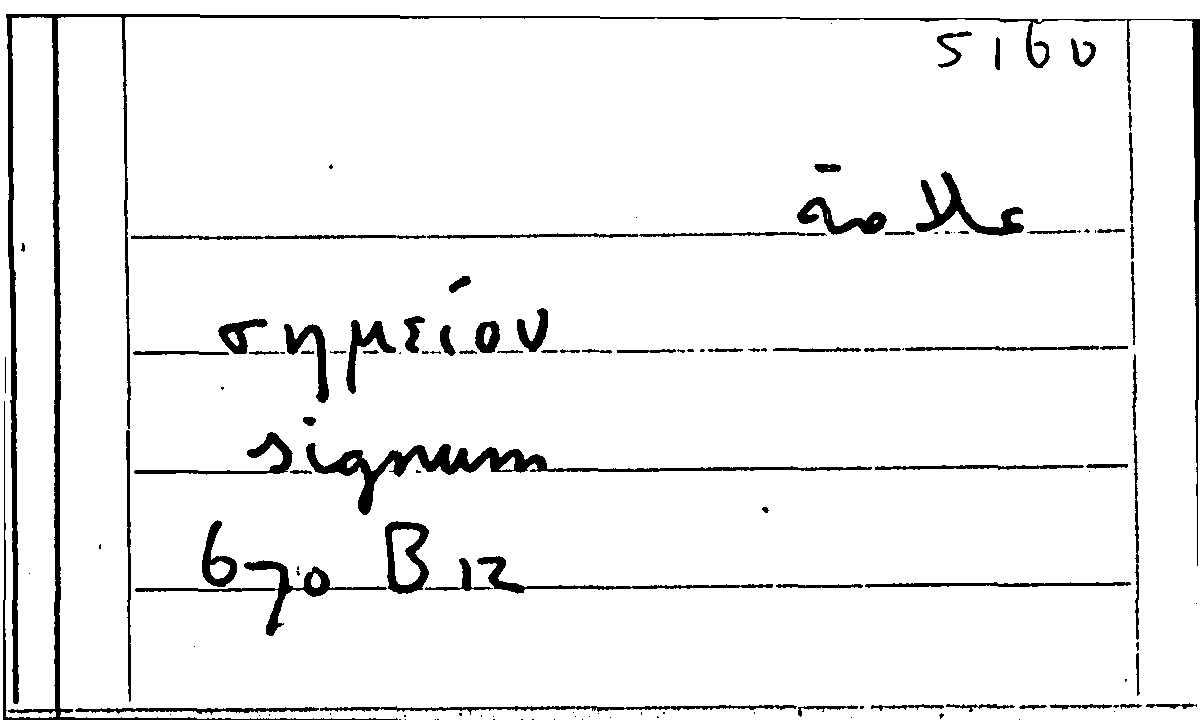 5160
σημείου
signum
670 B 12